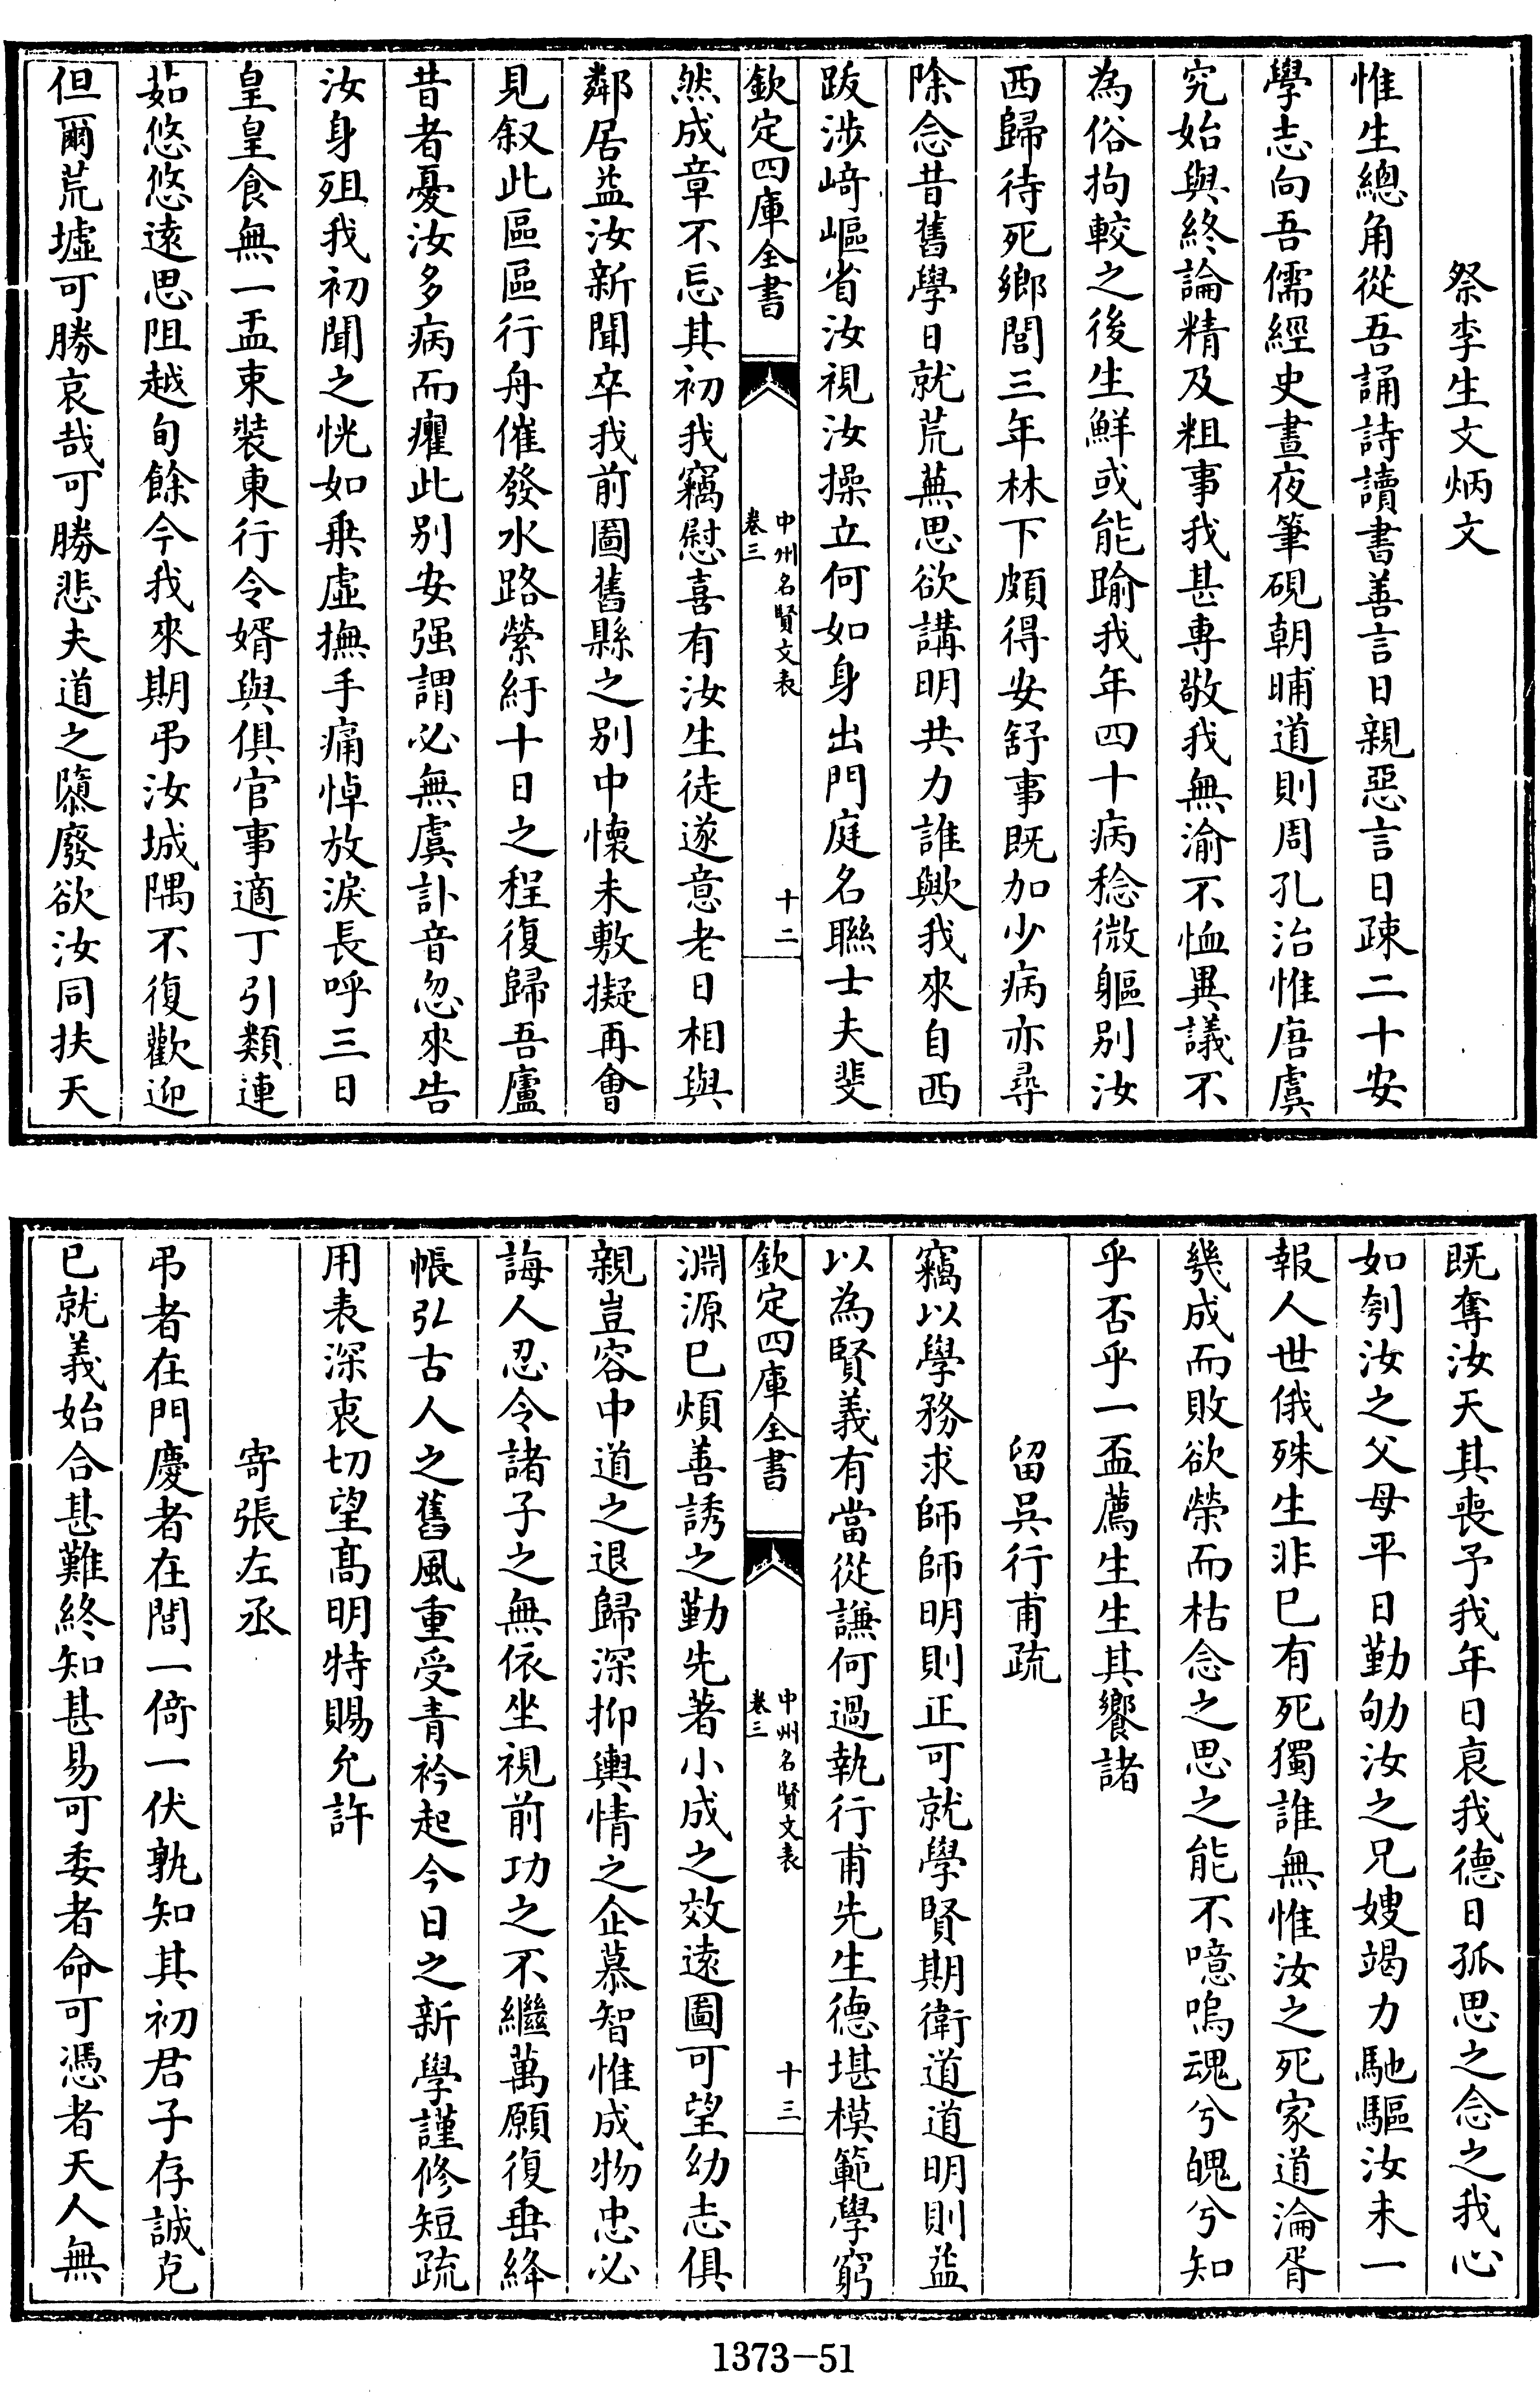 祭李生文炳文
惟生總角從吾誦詩讀書善言日親惡言日疎二十安
學志向吾儒經史晝夜筆硯朝晡道則周孔治惟唐虞
究始與終論精及粗事我甚專敬我無渝不恤異議不
為俗拘較之後生鮮或能踰我年四十病稔微軀别汝
西歸待死鄉閭三年林下頗得安舒事既加少病亦尋
除念昔舊學日就荒蕪思欲講明共力誰歟我來自西
跋涉崎嶇省汝視汝操立何如身出門庭名聯士夫斐
欽定四庫全書
中州名賢文表
卷三
十二
然成章不忘其初我竊慰喜有汝生徒遂意老日相與
鄰居益汝新聞卒我前圖舊縣之别中懷未敷擬再會
見叙此區區行舟催發水路縈紆十日之程復歸吾廬
昔者憂汝多病而癯此别安强謂必無虞訃音忽來告
汝身殂我初聞之恍如乗虛撫手痛悼放淚長呼三日
皇皇食無一盂束裝東行令婿與俱官事適丁引類連
茹悠悠逺思阻越旬餘今我來期弔汝城隅不復歡迎
但爾荒墟可勝哀哉可勝悲夫道之隳廢欲汝同扶天
既奪汝天其喪予我年日衰我德日孤思之念之我心
如刳汝之父母平日勤劬汝之兄嫂竭力馳驅汝未一
報人世俄殊生非已有死獨誰無惟汝之死家道淪胥
幾成而敗欲榮而枯念之思之能不噫嗚魂兮魄兮知
乎否乎一盃薦生生其饗諸
留吳行甫疏
竊以學務求師師明則正可就學賢期衛道道明則益
以為賢義有當從謙何過執行甫先生德堪模範學窮
欽定四庫全書
中州名賢文表
卷三
十三
淵源已煩善誘之勤先著小成之效逺圖可望幼志俱
親豈容中道之退歸深抑輿情之企慕智惟成物忠必
誨人忍令諸子之無依坐視前功之不繼萬願復垂絳
帳弘古人之舊風重受青衿起今日之新學謹修短疏
用表深衷切望髙明特賜允許
寄張左丞
弔者在門慶者在閭一倚一伏孰知其初君子存誠克
已就義始合甚難終知甚易可委者命可憑者天人無
1373-51